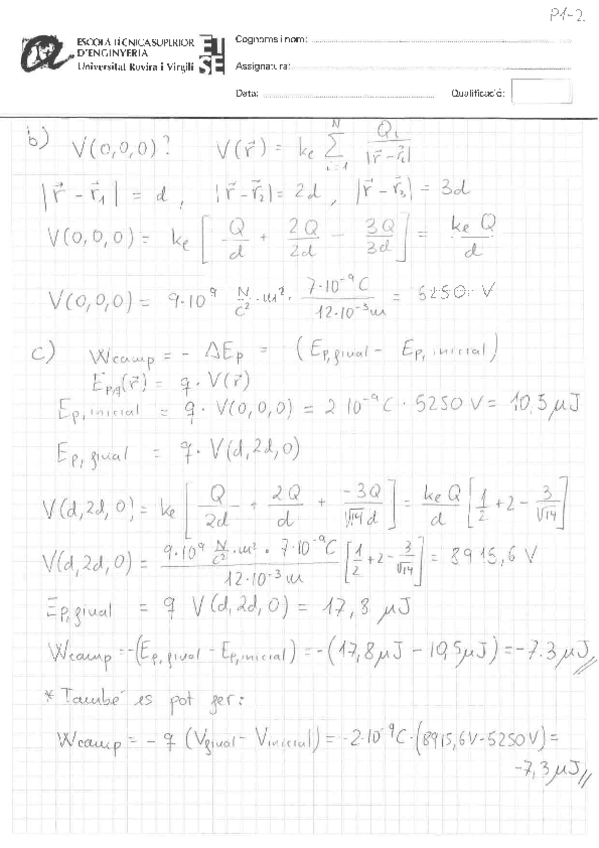 P1-2.
ESCOLA TÈCNICA SUPERIOR
D'ENGINYERIA
Universitat Rovira i Virgili
ET
SE
Cognoms i nom:
Assignatura:
Data: Qualificació:
b) V(0,0,0)? V(r⃗) = ke Σ_{i=1}^{N} Qi/|r⃗-r⃗i|
|r⃗ - r⃗1| = d, |r⃗-r⃗2| = 2d, |r⃗-r⃗3| = 3d
V(0,0,0) = ke [Q/d + 2Q/2d - 3Q/3d] = ke Q/d
V(0,0,0) = 9·10⁹ N/C² · m² · 7·10⁻⁹C/12·10⁻³m = 5250 V
c) Wcamp = - ΔEp = (Ep,final - Ep, inicial)
Ep,q(r⃗) = q · V(r⃗)
Ep, inicial = q · V(0,0,0) = 2 10⁻⁹ C · 5250 V = 10,5 μJ
Ep, final = q · V(d,2d,0)
V(d,2d,0) = ke [Q/2d + 2Q/d + -3Q/√14 d] = keQ/d [1/2 + 2 - 3/√14]
V(d,2d,0) = 9·10⁹ N/C² · m² · 7·10⁻⁹C/12·10⁻³ m [1/2 + 2 - 3/√14] = 8915,6 V
Ep,final = q V(d,2d,0) = 17,8 μJ
Wcamp = -(Ep,final - Ep,inicial) = -(17,8μJ - 10,5μJ) = -7.3 μJ
* També es pot fer:
Wcamp = - q (Vfinal - Vinicial) = -2·10⁻⁹C·(8915,6V-5250V) =
-7,3 μJ